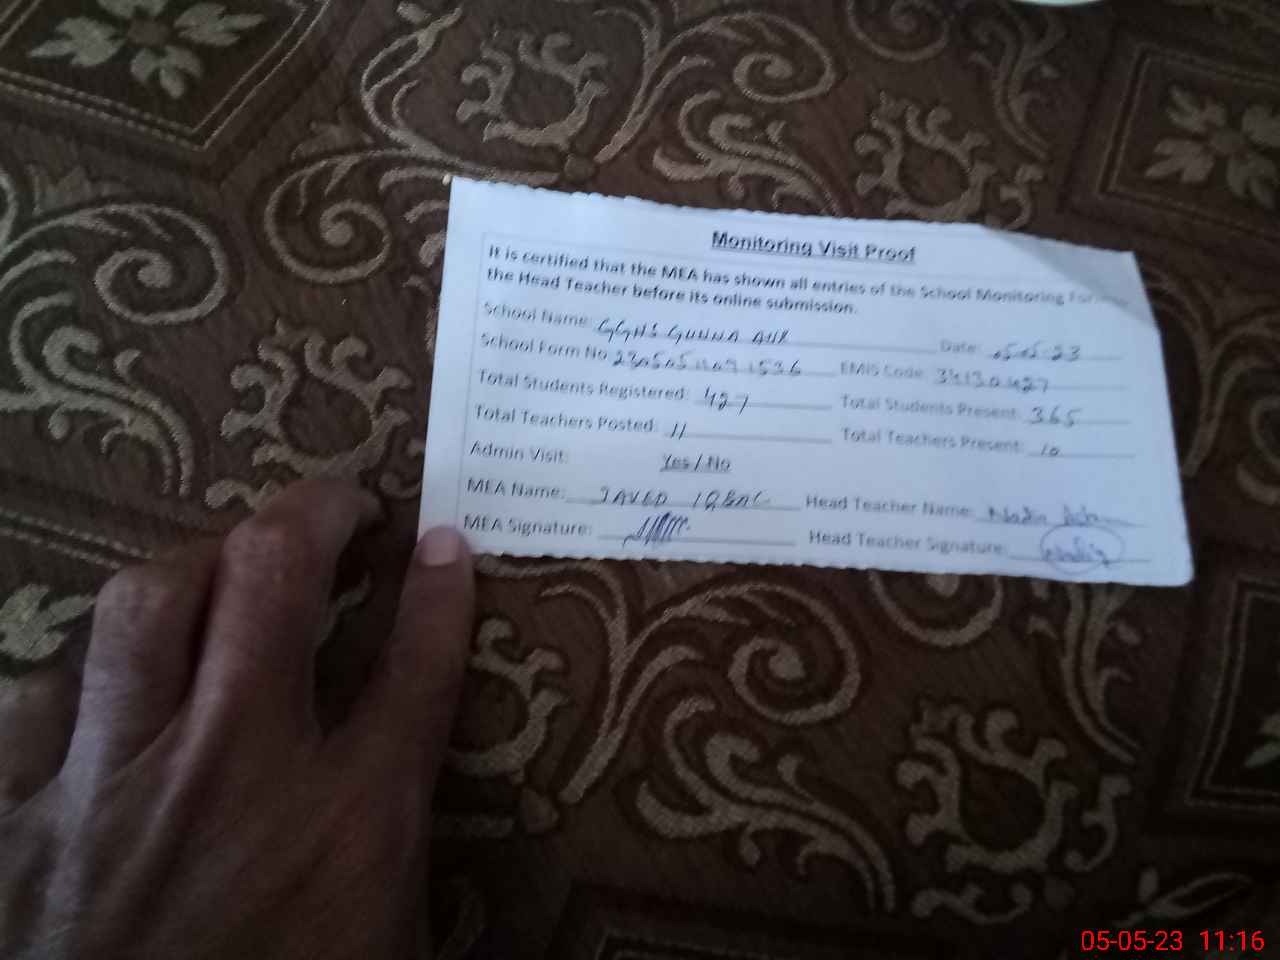 Monitoring Visit Proof
It is certified that the MEA has shown all entries of the School Monitoring Form
the Head Teacher before its online submission.
School Name: GGHS GUNNA AUR Date: 05-05-23
School Form No EMIS Code:
Total Students Registered: 427 Total Students Present: 365
Total Teachers Posted: 11 Total Teachers Present: 10
Admin Visit: Yes / No
MEA Name: JAVED IQBAL Head Teacher Name: Nadia
MEA Signature: Head Teacher Signature:
05-05-23 11:16